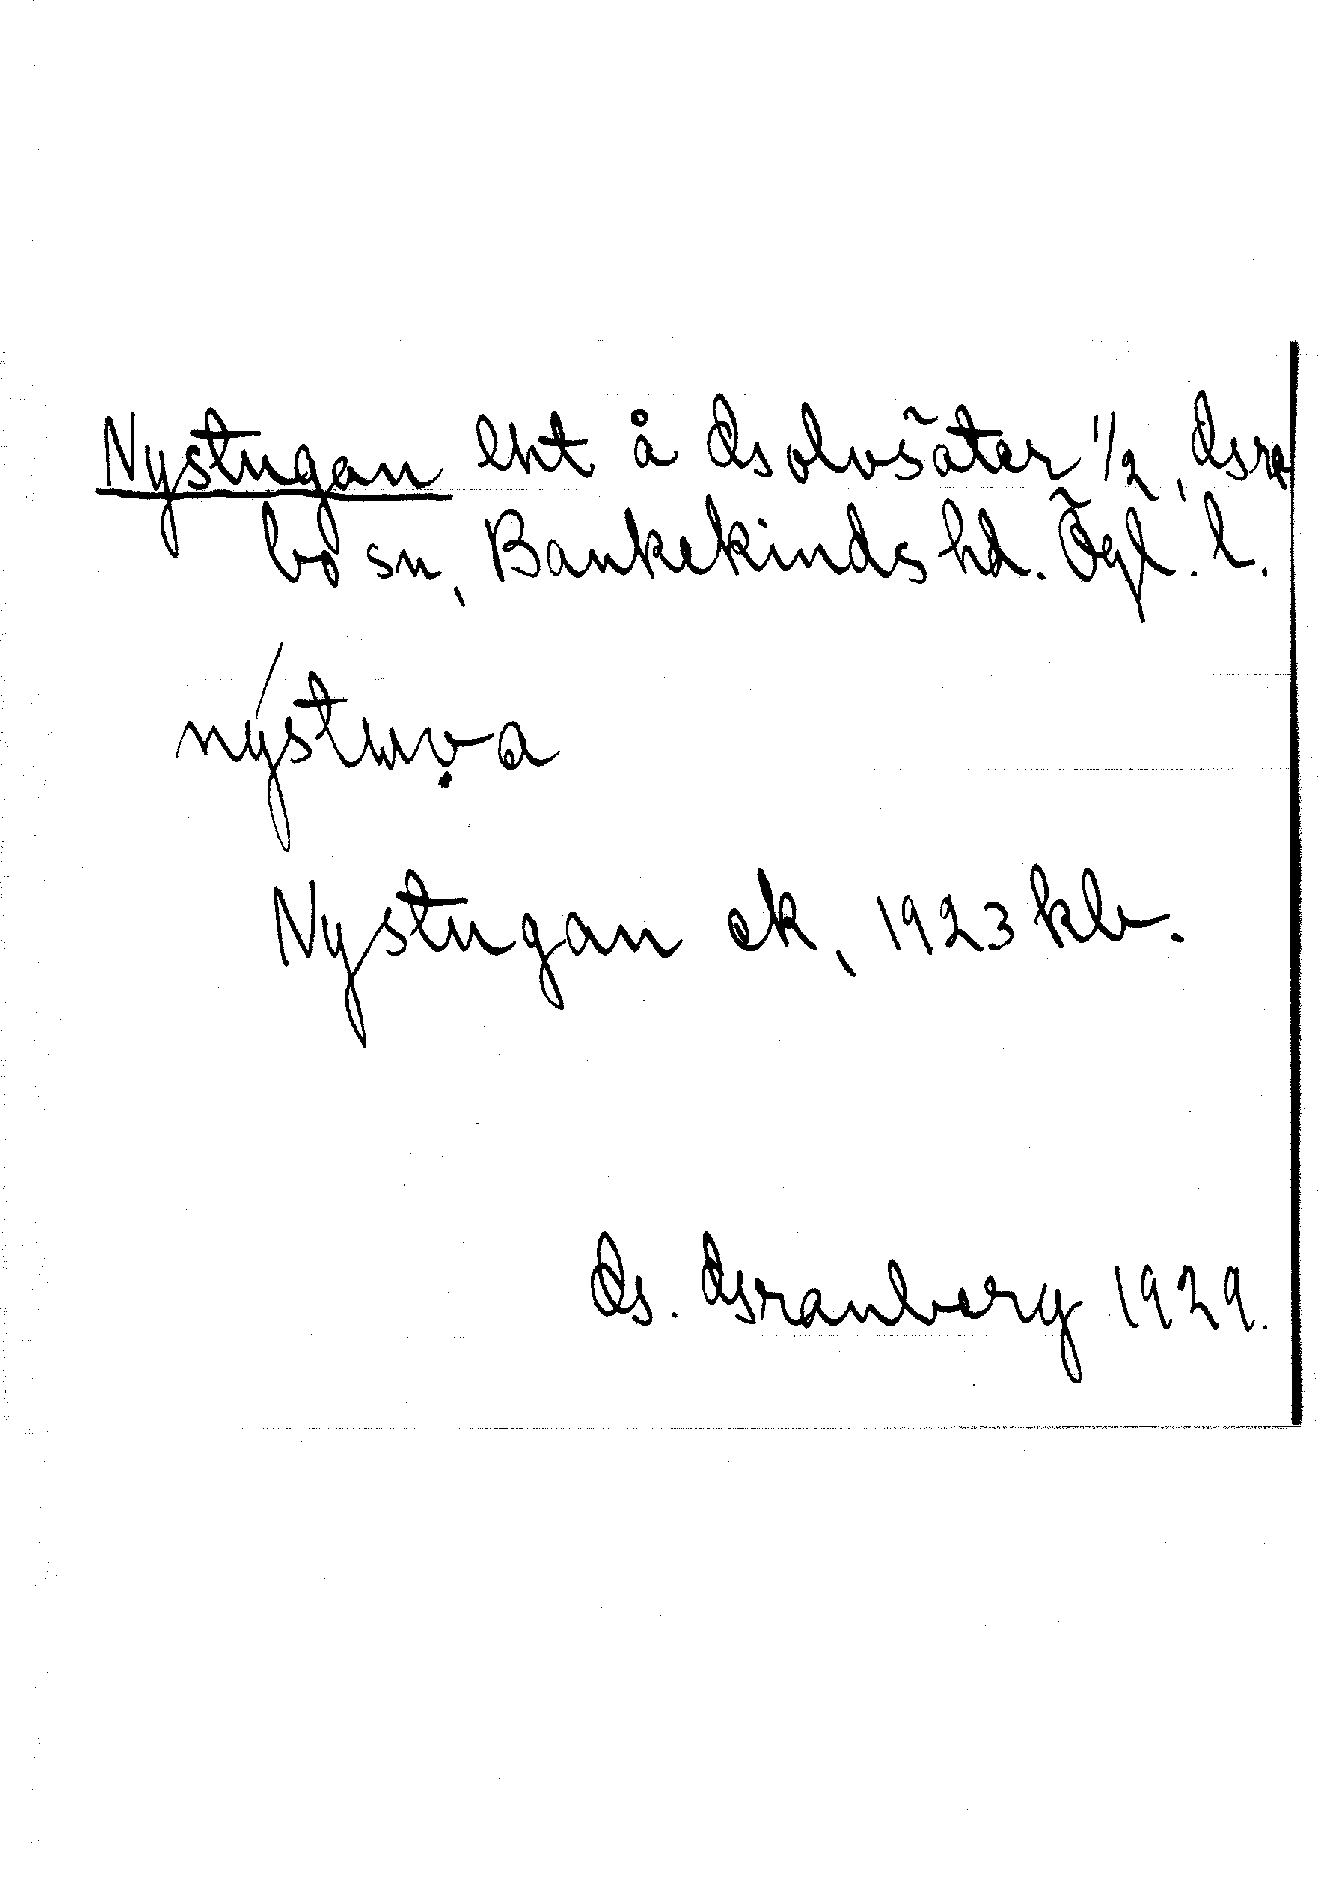 Nystugan lht å Golvsäter 1/2, Gre
bo sn, Bankekinds hd. Ögl. l.
nýstuṿa
Nystugan ek, 1923 kb.
G. Granberg 1929.